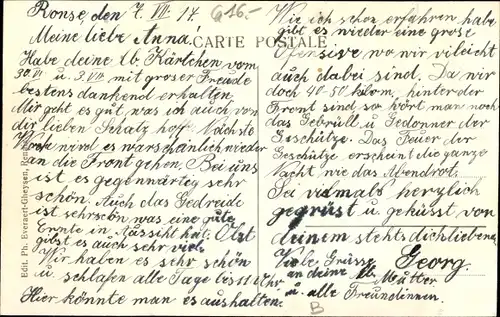 Ronse, den 7. VII. 17.
G16-
Meine liebe Anna!
CARTE POSTALE
Habe deine lb. Kärtchen vom
30.VI u. 3.VII. mit groser Freude
bestens dankend erhalten.
Mir geht es gut was im auch von
dir lieben Schatz hoffe. Nächste
Woche wird es warscheinlich wieder
an die Front gehen. Bei uns
ist es gegenwärtig sehr
schön. Auch das Gedreide
ist sehr schön was eine gute
Ernte in Aussiht hat. Obst
gibt es auch sehr viel.
Wir haben es sehr schön
u. schlafen alle Tage bis 11 Uhr
Hier könnte man es aushalten.
Wie ich schon erfahren habe
gibt es wieder eine grose
Ofensive wo wir vileicht
auch dabei sind. Da wir
doch 40-50 kilom. hinter der
Front sind so hört man noch
das Gebrüll u. Gedonner der
Geschütze. Das Feuer der
Geschütze erscheint die ganze
Nacht wie das Abendrot.
Sei vielmals herzlich
gegrüst u. geküsst von
deinem stehts dichliebend.
Georg.
Viele Grüsse
an deine lb. Mutter
u. alle Freundinnen.
B
Edit. Ph. Everaert-Gheysen, Renaix